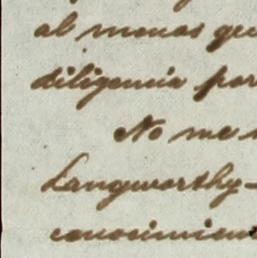 al menos que
diligencia por
No me
Langworthy-
conocimien